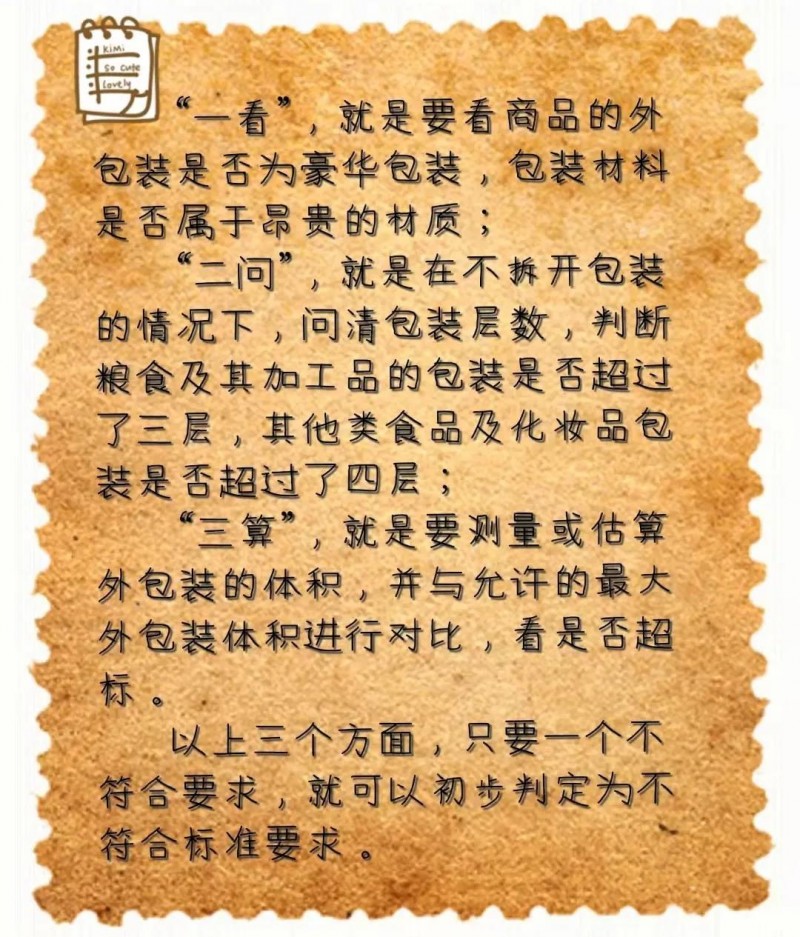 KiMi
so cute
lovely
“一看”，就是要看商品的外
包装是否为豪华包装，包装材料
是否属于昂贵的材质；
“二问”，就是在不拆开包装
的情况下，问清包装层数，判断
粮食及其加工品的包装是否超过
了三层，其他类食品及化妆品包
装是否超过了四层；
“三算”，就是要测量或估算
外包装的体积，并与允许的最大
外包装体积进行对比，看是否超
标。
以上三个方面，只要一个不
符合要求，就可以初步判定为不
符合标准要求。